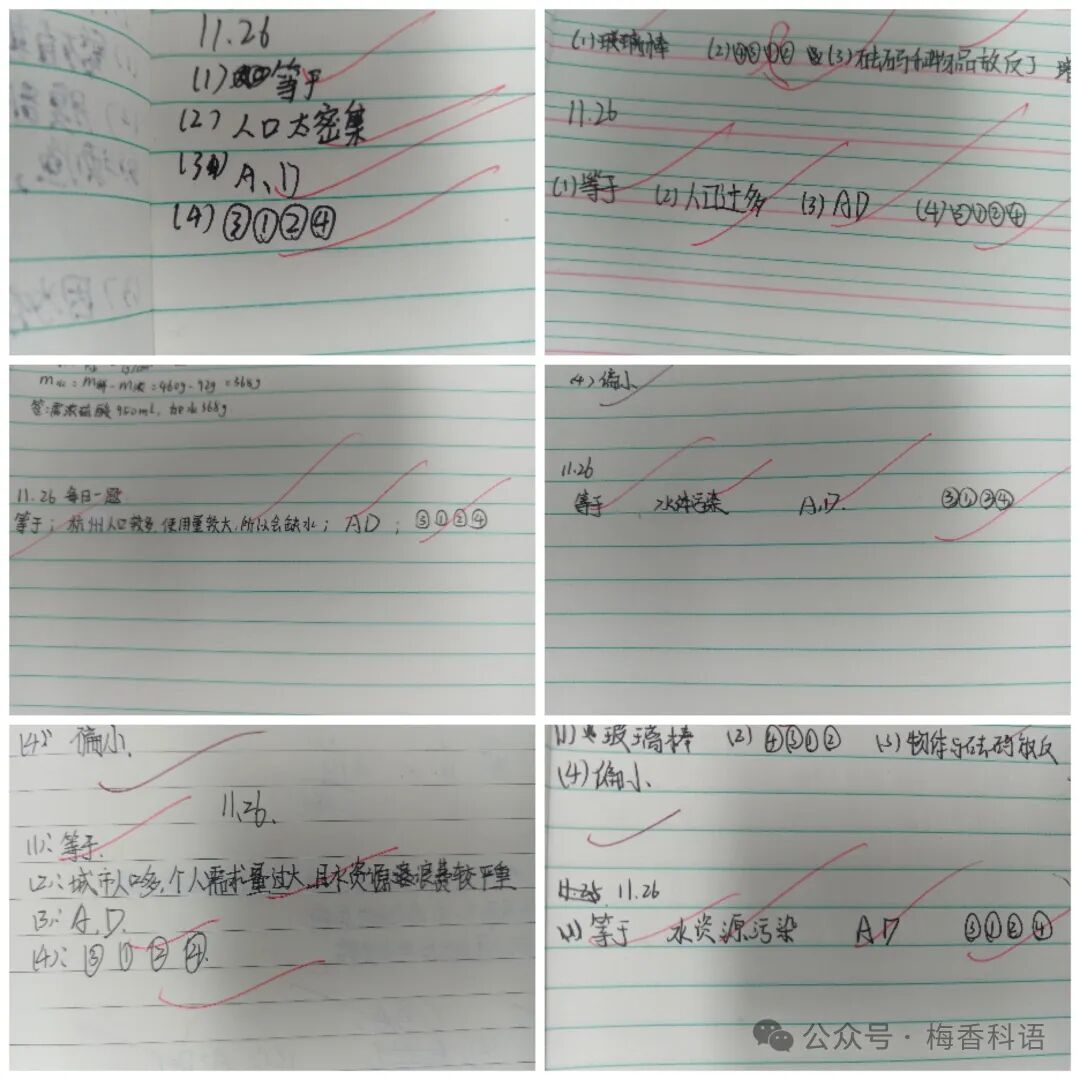 11.26
(1) 等于
(2) 人口太密集
(3) A、D
(4) ③①②④
(1) 玻璃棒 (2) (3) 砝码和物品放反了
11.26
(1) 等于 (2) 人口过多 (3) AD (4) ③①②④
m水 = m稀 - m浓 = 460g - 92g = 368g
答:需浓硫酸 950ml, 加水368g
11.26 每日一题
等于; 杭州人口较多,使用量较大,所以会缺水; AD; ③①②④
(4) 偏小
11.26
等于 水体污染 A、D. ③①②④
(4) 偏小.
11.26.
(1): 等于.
(2): 城市人口多,个人需求量过大,且水资源浪费较严重
(3): A、D.
(4): ③ ① ② ④.
(1) 玻璃棒 (2) ④③①② (3) 物体与砝码放反
(4) 偏小.
11.25 11.26
(1) 等于 水资源污染 AD ③①②④
公众号·梅香科语